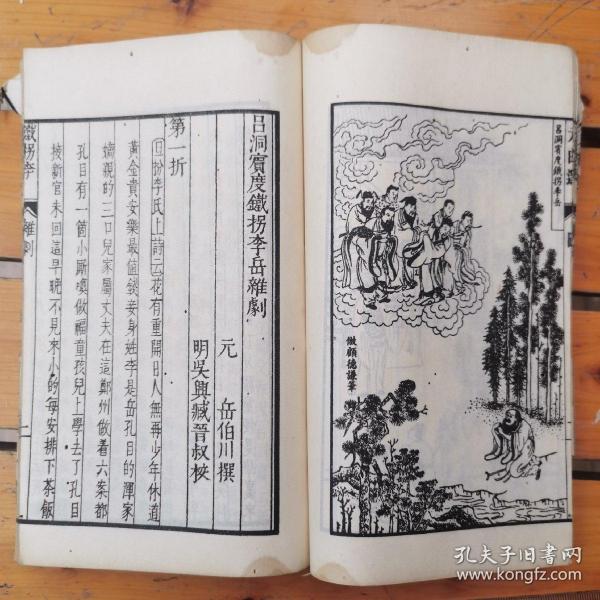 元曲選
圖
呂洞賓度鐵拐李岳
倣顧德謙筆
呂洞賓度鐵拐李岳雜劇
元 岳伯川撰
明吳興臧晉叔校
第一折
旦扮李氏上詩云花有重開日人無再少年休道
黃金貴安樂最值錢妾身姓李是岳孔目的渾家
嫡親的三口兒家屬丈夫在這鄭州做着六案都
孔目有一箇小厮喚做福童孩兒上學去了孔目
接新官未回這早晚不見來小的每安排下茶飯
鐵拐李 雜劇 一
孔夫子旧书网
www.kongfz.com